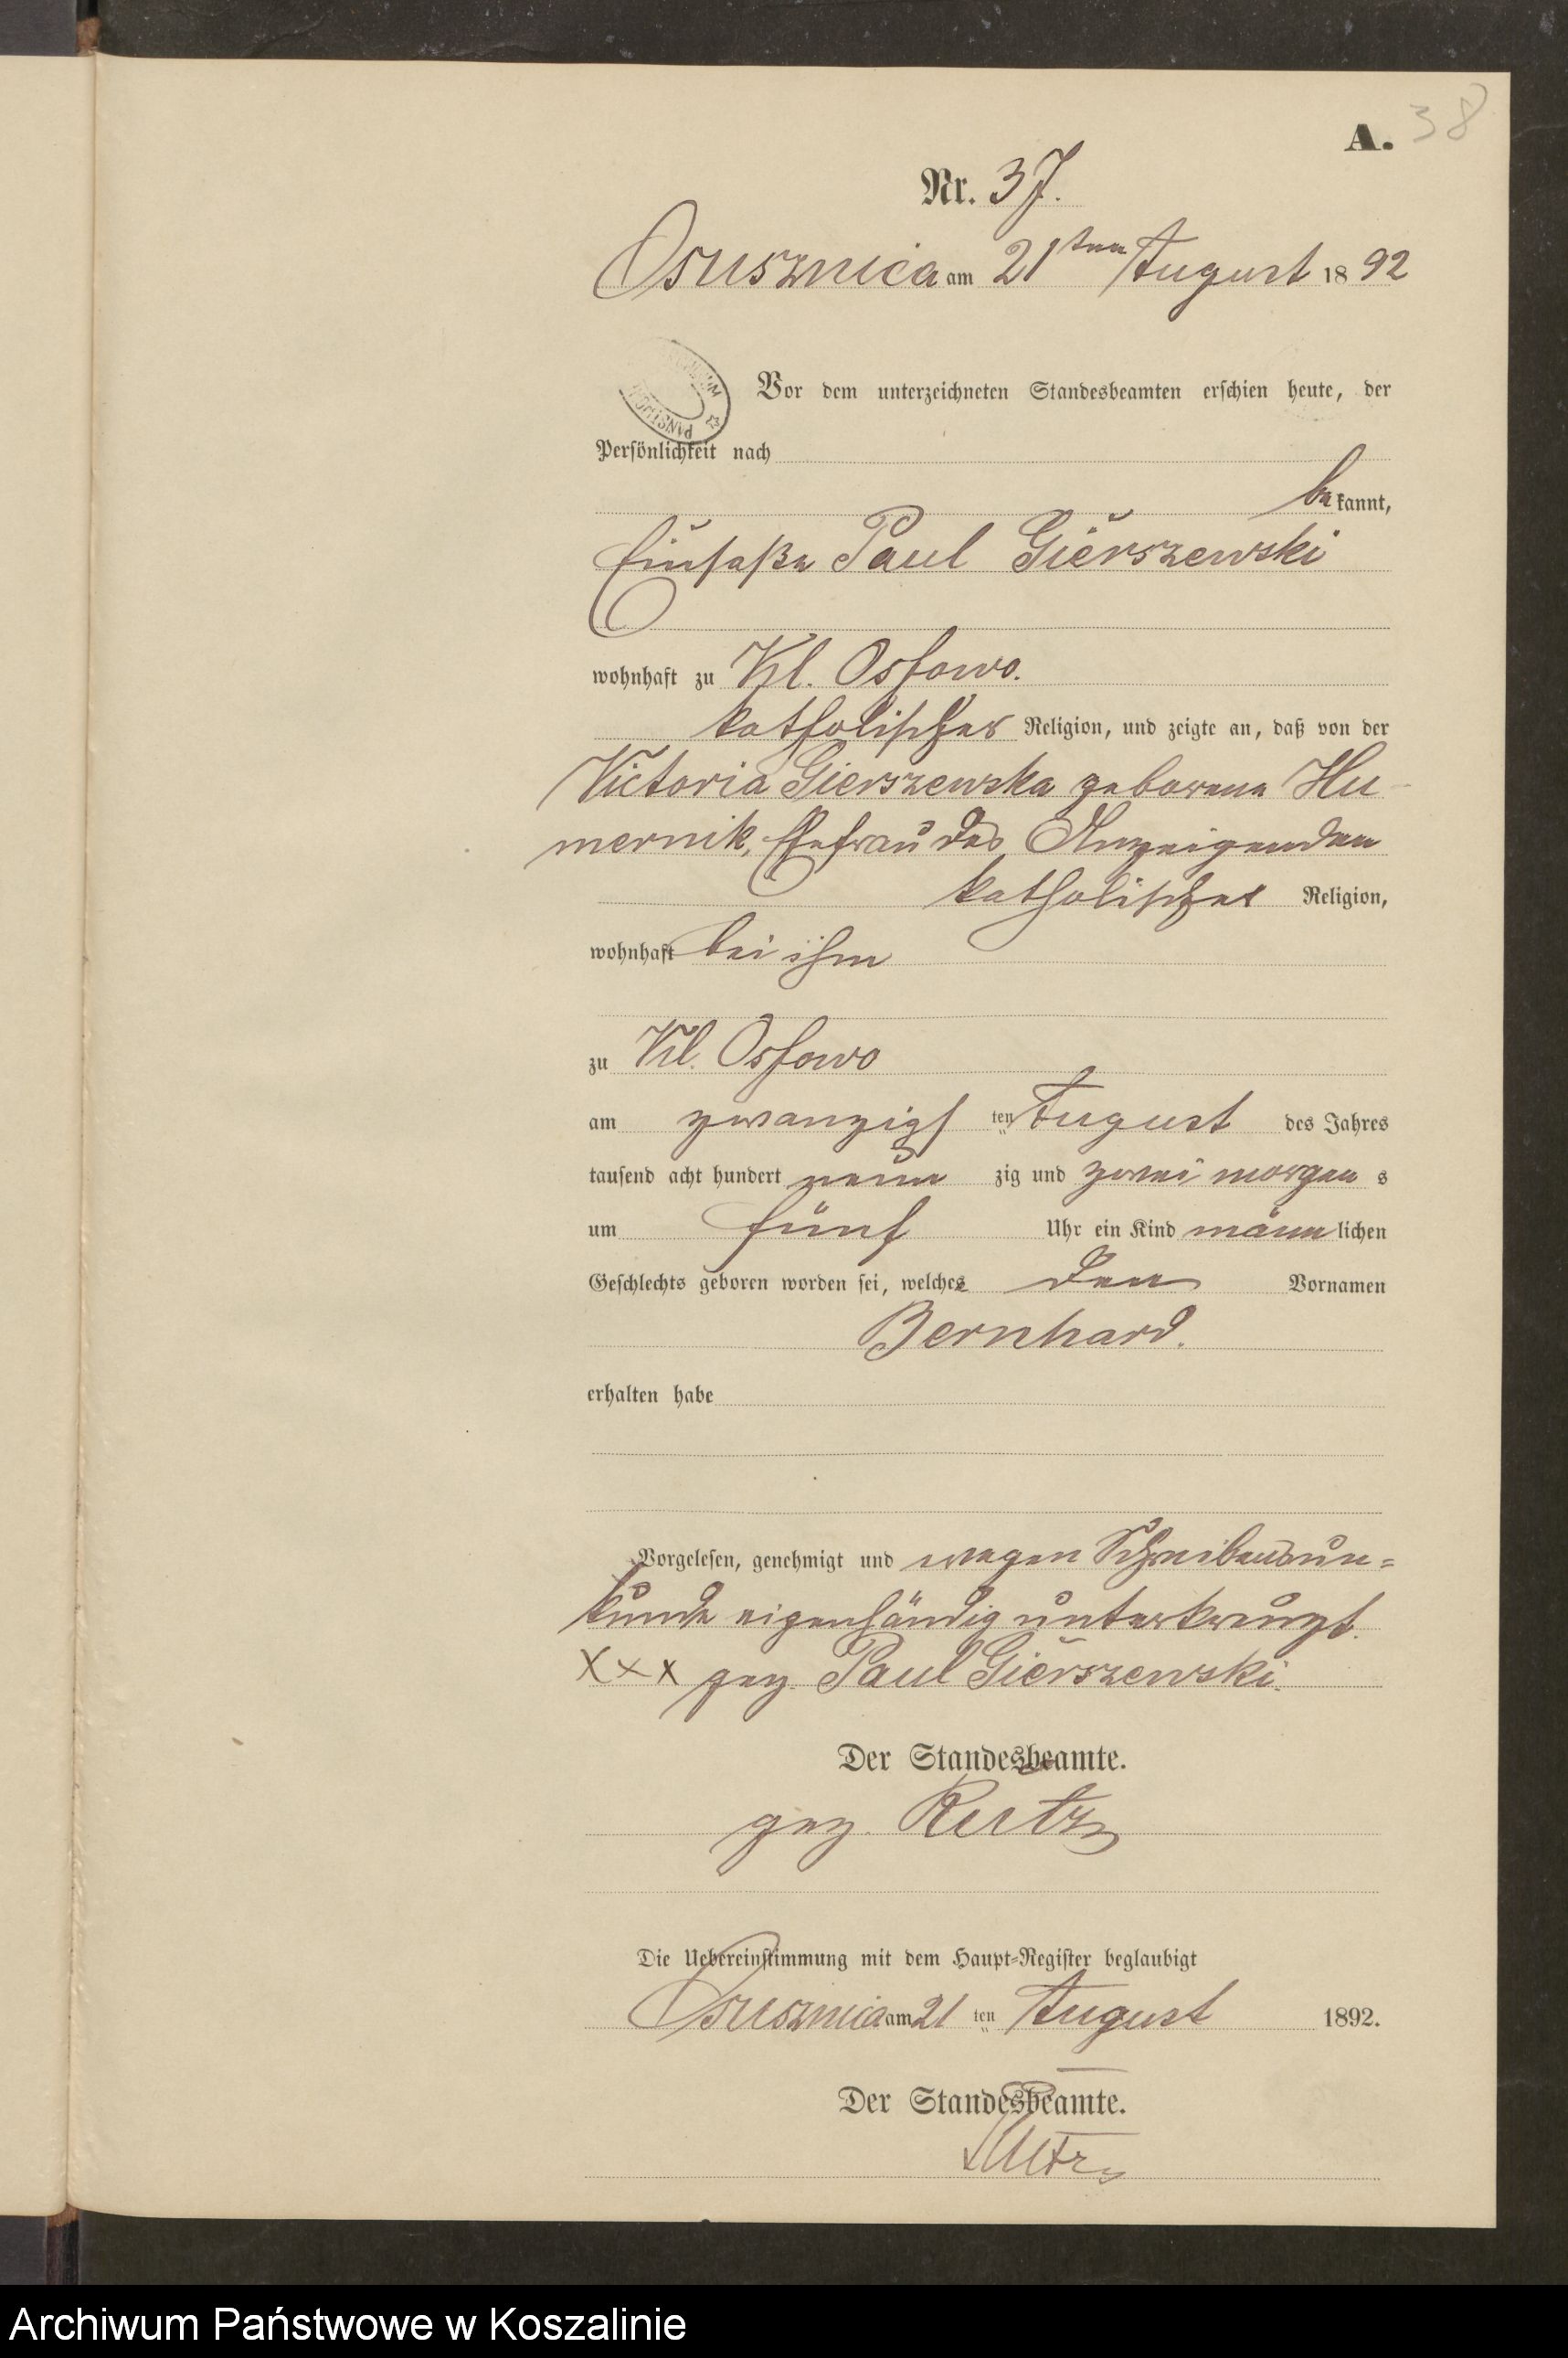 38
A.
Nr. 37.
Osusznica am 21ten August 1892
Vor dem unterzeichneten Standesbeamten erschien heute, der
Persönlichkeit nach
bekannt,
Einsaße Paul Gierszewski
wohnhaft zu Kl. Ossowo.
katholischer Religion, und zeigte an, daß von der
Victoria Gierszewska geborene Hu-
mernik, Ehefrau des Anzeigenden
katholischer Religion,
wohnhaft bei ihm
zu Kl. Ossowo
am zwanzigsten August des Jahres
tausend acht hundert neunzig und zwei morgens
um fünf Uhr ein Kind männlichen
Geschlechts geboren worden sei, welches den Vornamen
Bernhard.
erhalten habe
Vorgelesen, genehmigt und wegen Schreibensun=
kunde eigenhändig unterkreuzt.
XXX gez. Paul Gierszewski.
Der Standesbeamte.
gez.
Die Uebereinstimmung mit dem Haupt=Register beglaubigt
Osusznica am 21ten August 1892.
Der Standesbeamte.
Archiwum Państwowe w Koszalinie